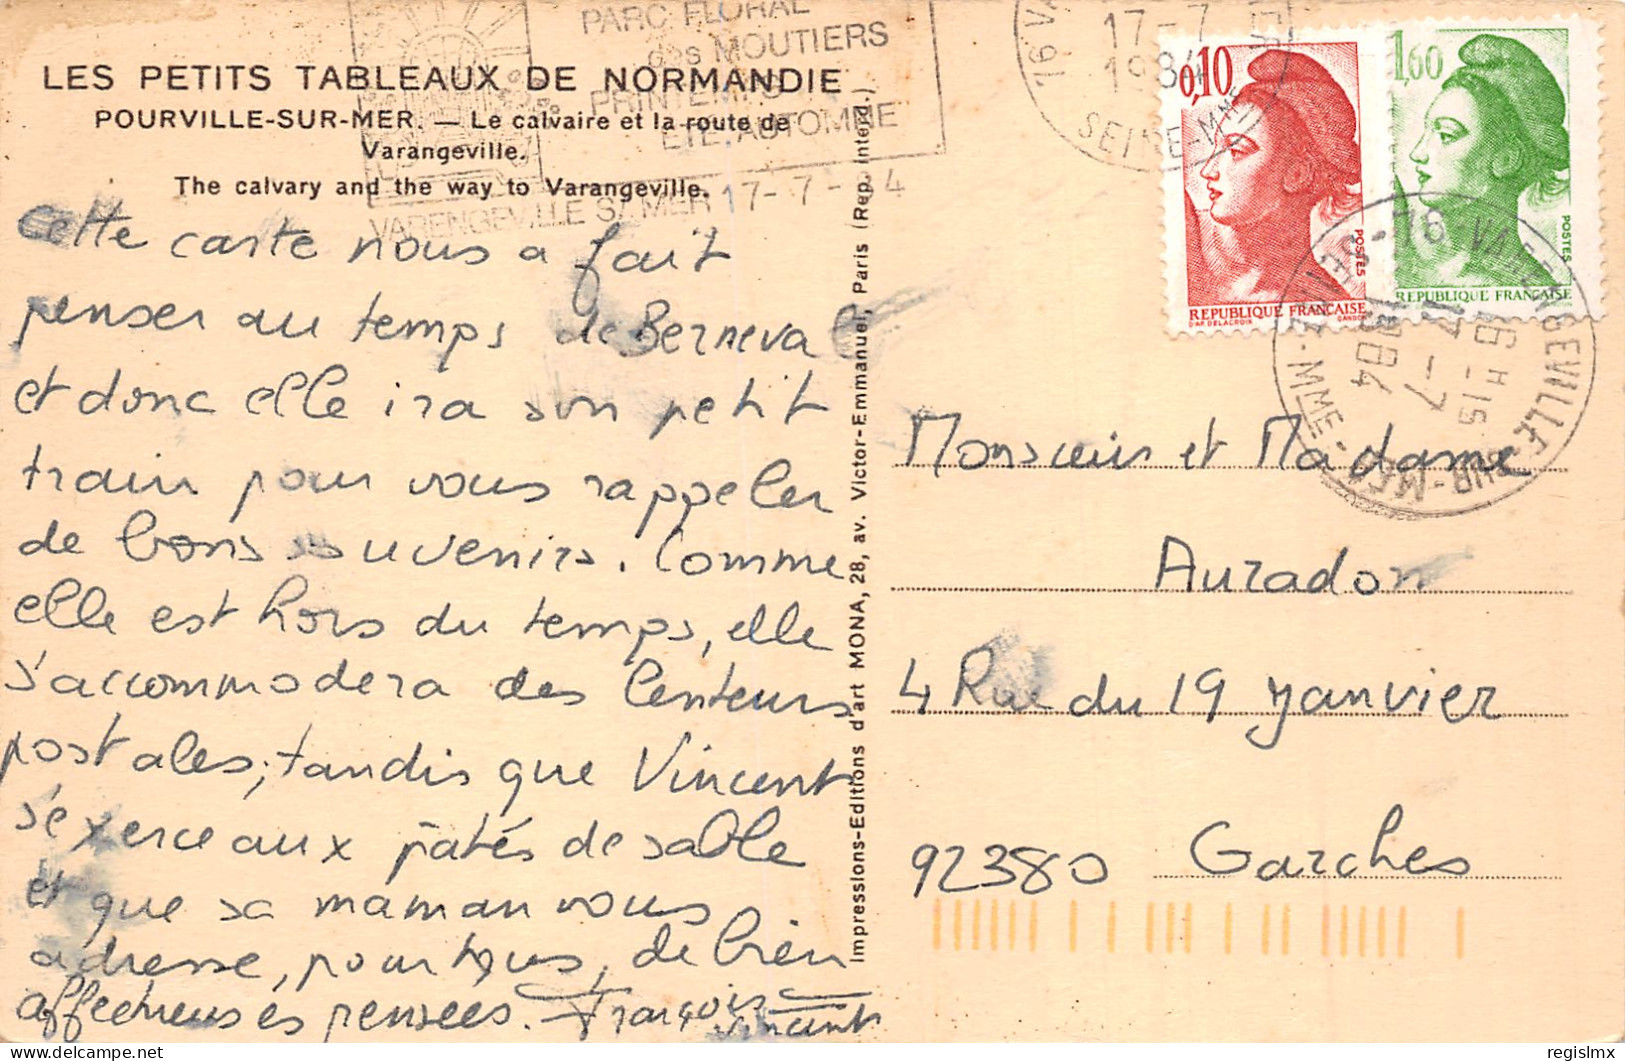 PARC FLORAL
des MOUTIERS
PRINTEMPS
ETE.AUTOMNE
VARENGEVILLE S/ MER 17-7-84
17-7
1984
SEINE-MME
LES PETITS TABLEAUX DE NORMANDIE
POURVILLE-SUR-MER. — Le calvaire et la route de
Varangeville.
The calvary and the way to Varangeville.
Cette carte nous a fait
penser au temps de Berneval
et donc elle ira son petit
train pour vous rappeler
de bons souvenirs. Comme
elle est hors du temps, elle
s'accommodera des lenteurs
postales; tandis que Vincent
s'exerce aux pâtés de sable
et que sa maman vous
adresse, pour tous, de bien
affectueuses pensées. François
Vincent
Impressions-Editions d'art MONA, 28, av. Victor-Emmanuel, Paris (Rep. Interd.)
0,10
POSTES
REPUBLIQUE FRANÇAISE
D'AP. DELACROIX GANDON
1,60
POSTES
REPUBLIQUE FRANÇAISE
76 - VARENGEVILLE-SUR-MER
16 H 15
17-7
1984
SEINE-MME
Monsieur et Madame
Auradon
4 Rue du 19 Janvier
92380 Garches
regislmx